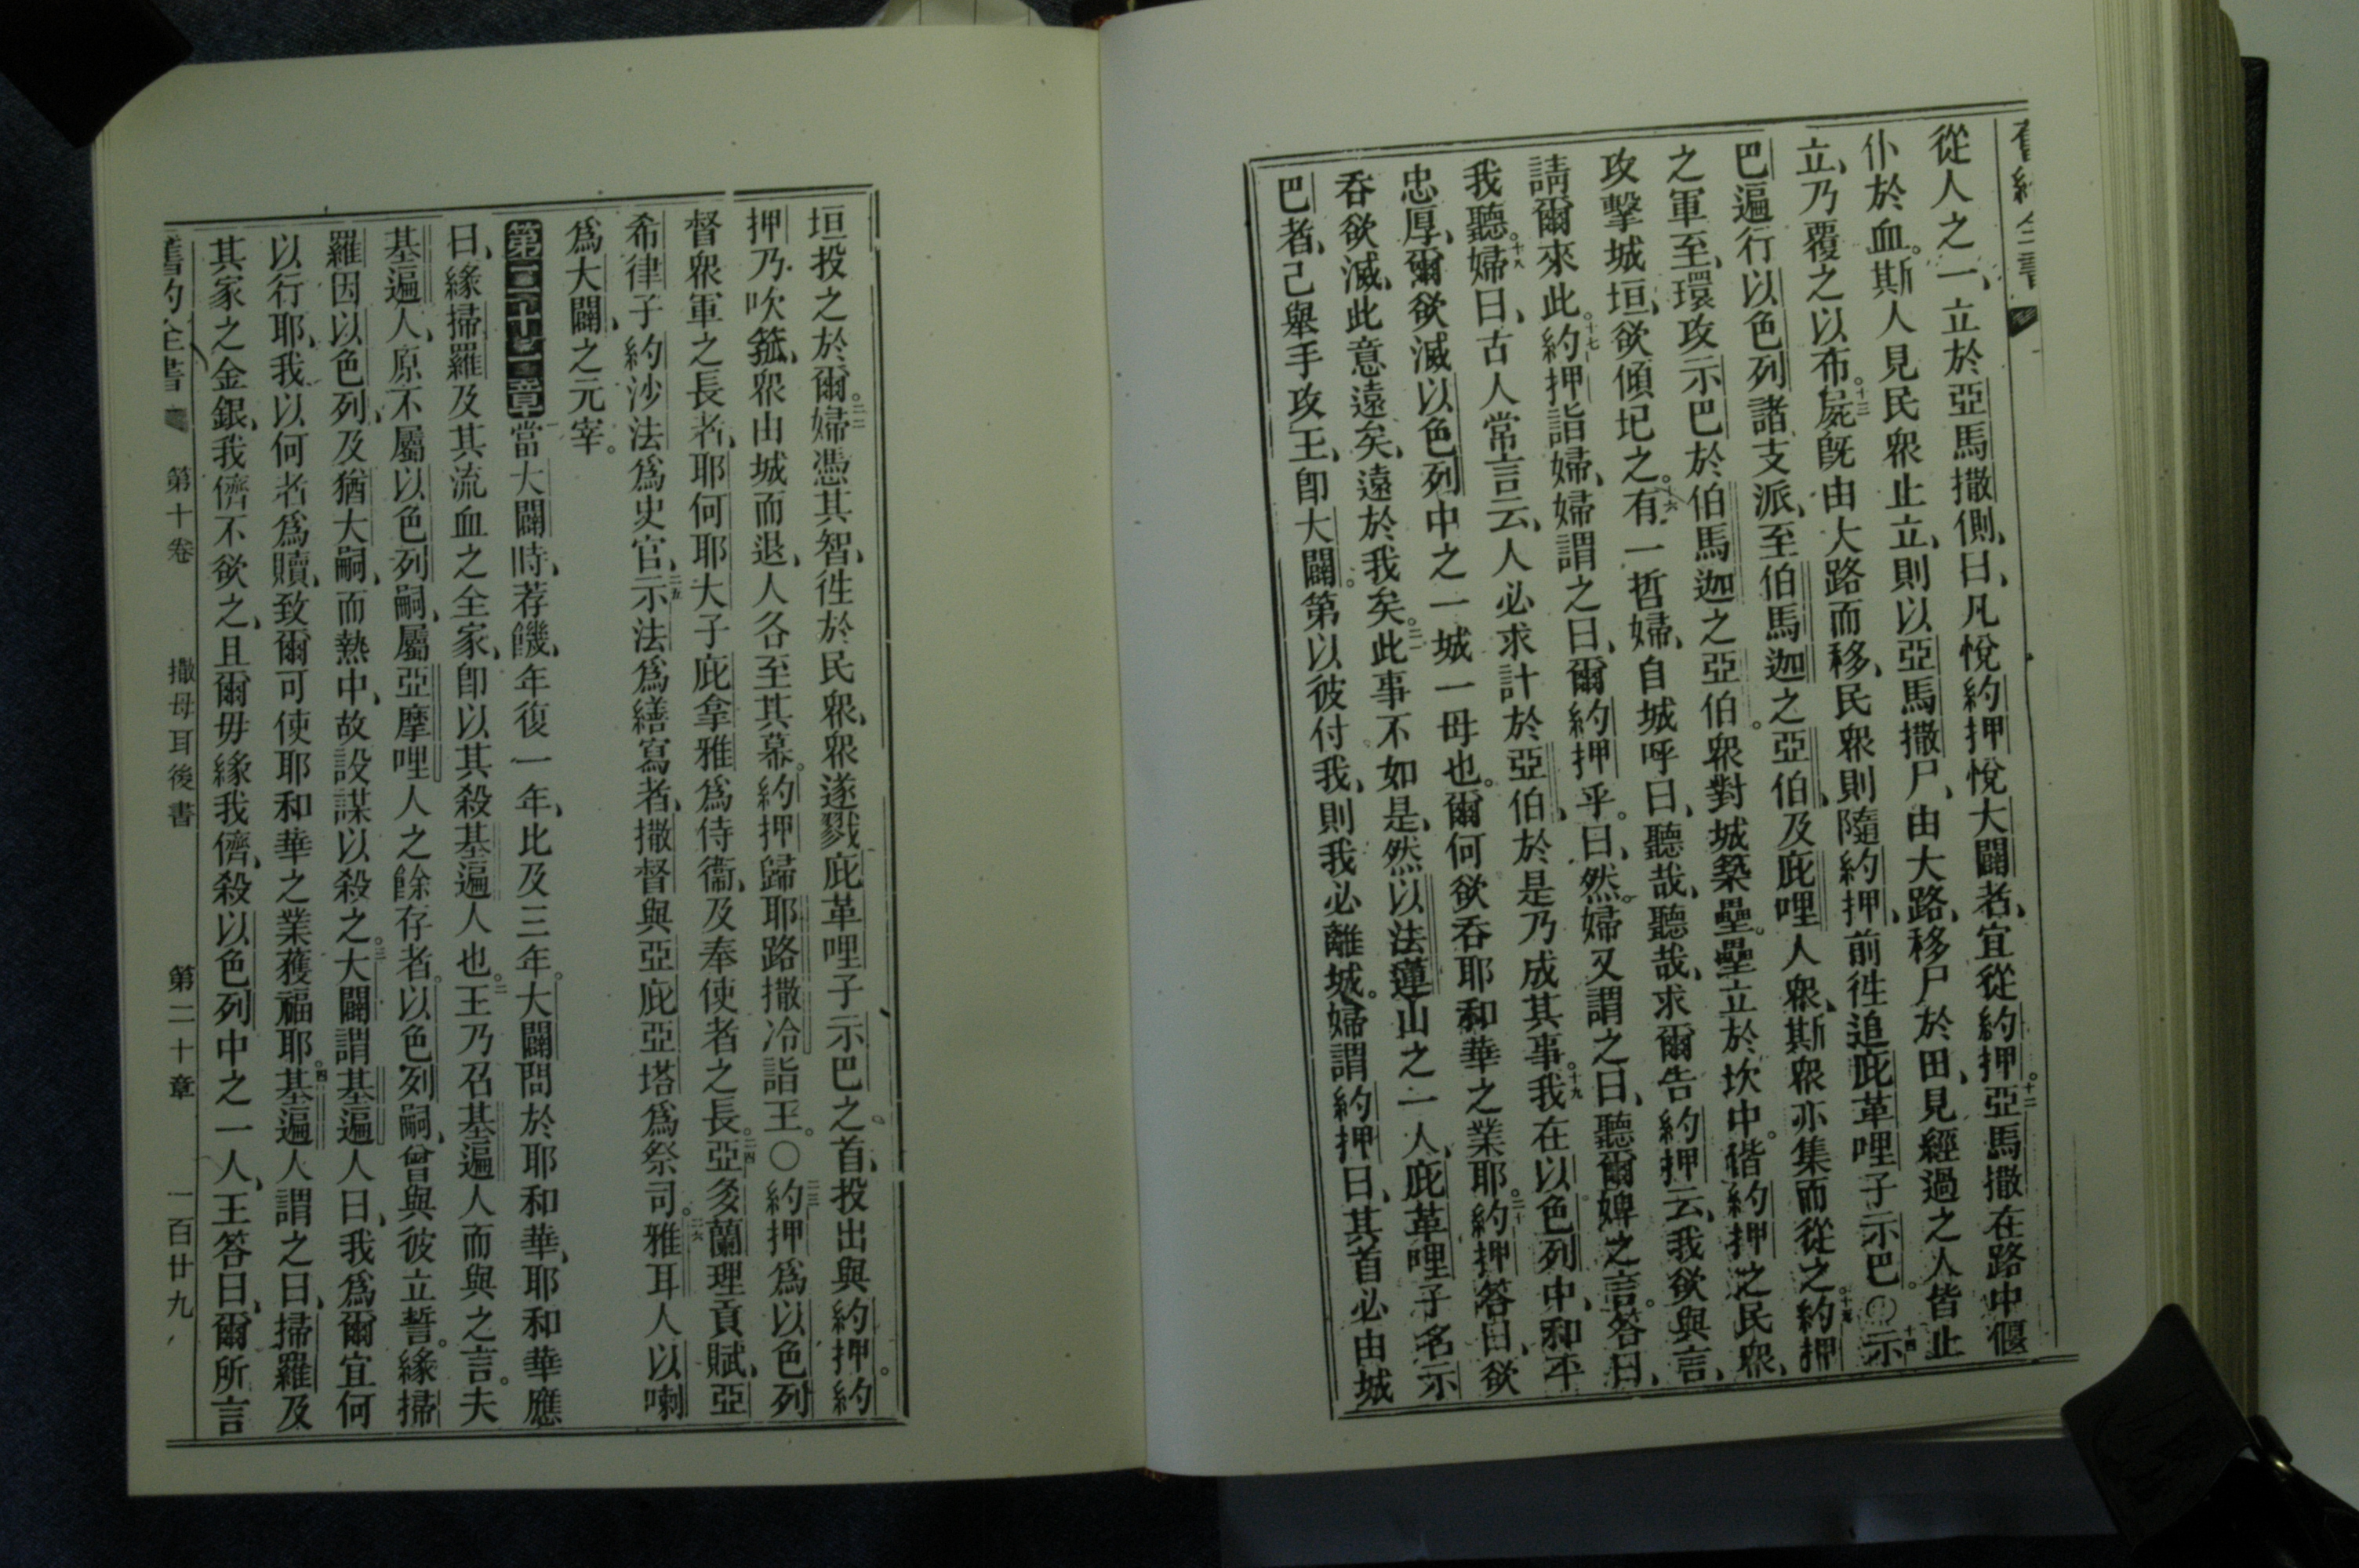 舊約全書
從人之一、立於亞馬撒側、曰、凡悅約押悅大闢者、宜從約押。十二亞馬撒在路中偃
仆於血。斯人見民衆止立、則以亞馬撒尸、由大路、移尸於田、見經過之人皆止
立、乃覆之以布。十三屍旣由大路而移、民衆則隨約押、前徃追庇革哩子示巴。〇十四示
巴遍行以色列諸支派、至伯馬迦之亞伯、及庇哩人衆、斯衆亦集而從之。十五約押
之軍至、環攻示巴於伯馬迦之亞伯。衆對城築壘。壘立於坎中。偕約押之民衆、
攻擊城垣、欲傾圮之。十六有一哲婦、自城呼曰、聽哉、聽哉、求爾告約押云、我欲與言、
請爾來此。十七約押詣婦、婦謂之曰、爾約押乎。曰、然。婦又謂之曰、聽爾婢之言。答曰、
我聽。十八婦曰、古人常言云、人必求計於亞伯、於是乃成其事。十九我在以色列中、和平
忠厚、爾欲滅以色列中之一城一母也。爾何欲吞耶和華之業耶。二十約押答曰、欲
吞欲滅、此意遠矣、遠於我矣。二一此事不如是、然以法蓮山之一人、庇革哩子名示
巴者、己舉手攻王、卽大闢。第以彼付我、則我必離城。婦謂約押曰、其首必由城
垣投之於爾。二二婦憑其智、徃於民衆、衆遂戮庇革哩子示巴之首、投出與約押。約
押乃吹箛、衆由城而退、人各至其幕。約押歸耶路撒冷詣王。〇二三約押爲以色列
督衆軍之長者、耶何耶大子庇拿雅爲侍衞、及奉使者之長。二四亞多蘭理貢賦、亞
希律子約沙法爲史官、二五示法爲繕寫者、撒督與亞庇亞塔爲祭司。二六雅耳人以喇
爲大闢、之元宰。
第二十一章當大闢時、荐饑、年復一年、比及三年。大闢問於耶和華、耶和華應
曰、緣掃羅及其流血之全家、卽以其殺基遍人也。二王乃召基遍人而與之言。夫
基遍人、原不屬以色列嗣、屬亞摩哩人之餘存者。以色列嗣、曾與彼立誓。緣掃
羅因以色列、及猶大嗣、而熱中、故設謀以殺之。三大闢謂基遍人曰、我爲爾宜何
以行耶、我以何者爲贖、致爾可使耶和華之業蒦福耶。四基遍人謂之曰、掃羅及
其家之金銀、我儕不欲之、且爾毋緣我儕、殺以色列中之一人、王答曰、爾所言
舊約全書 第十卷 撒母耳後書 第二十章 一百廿九